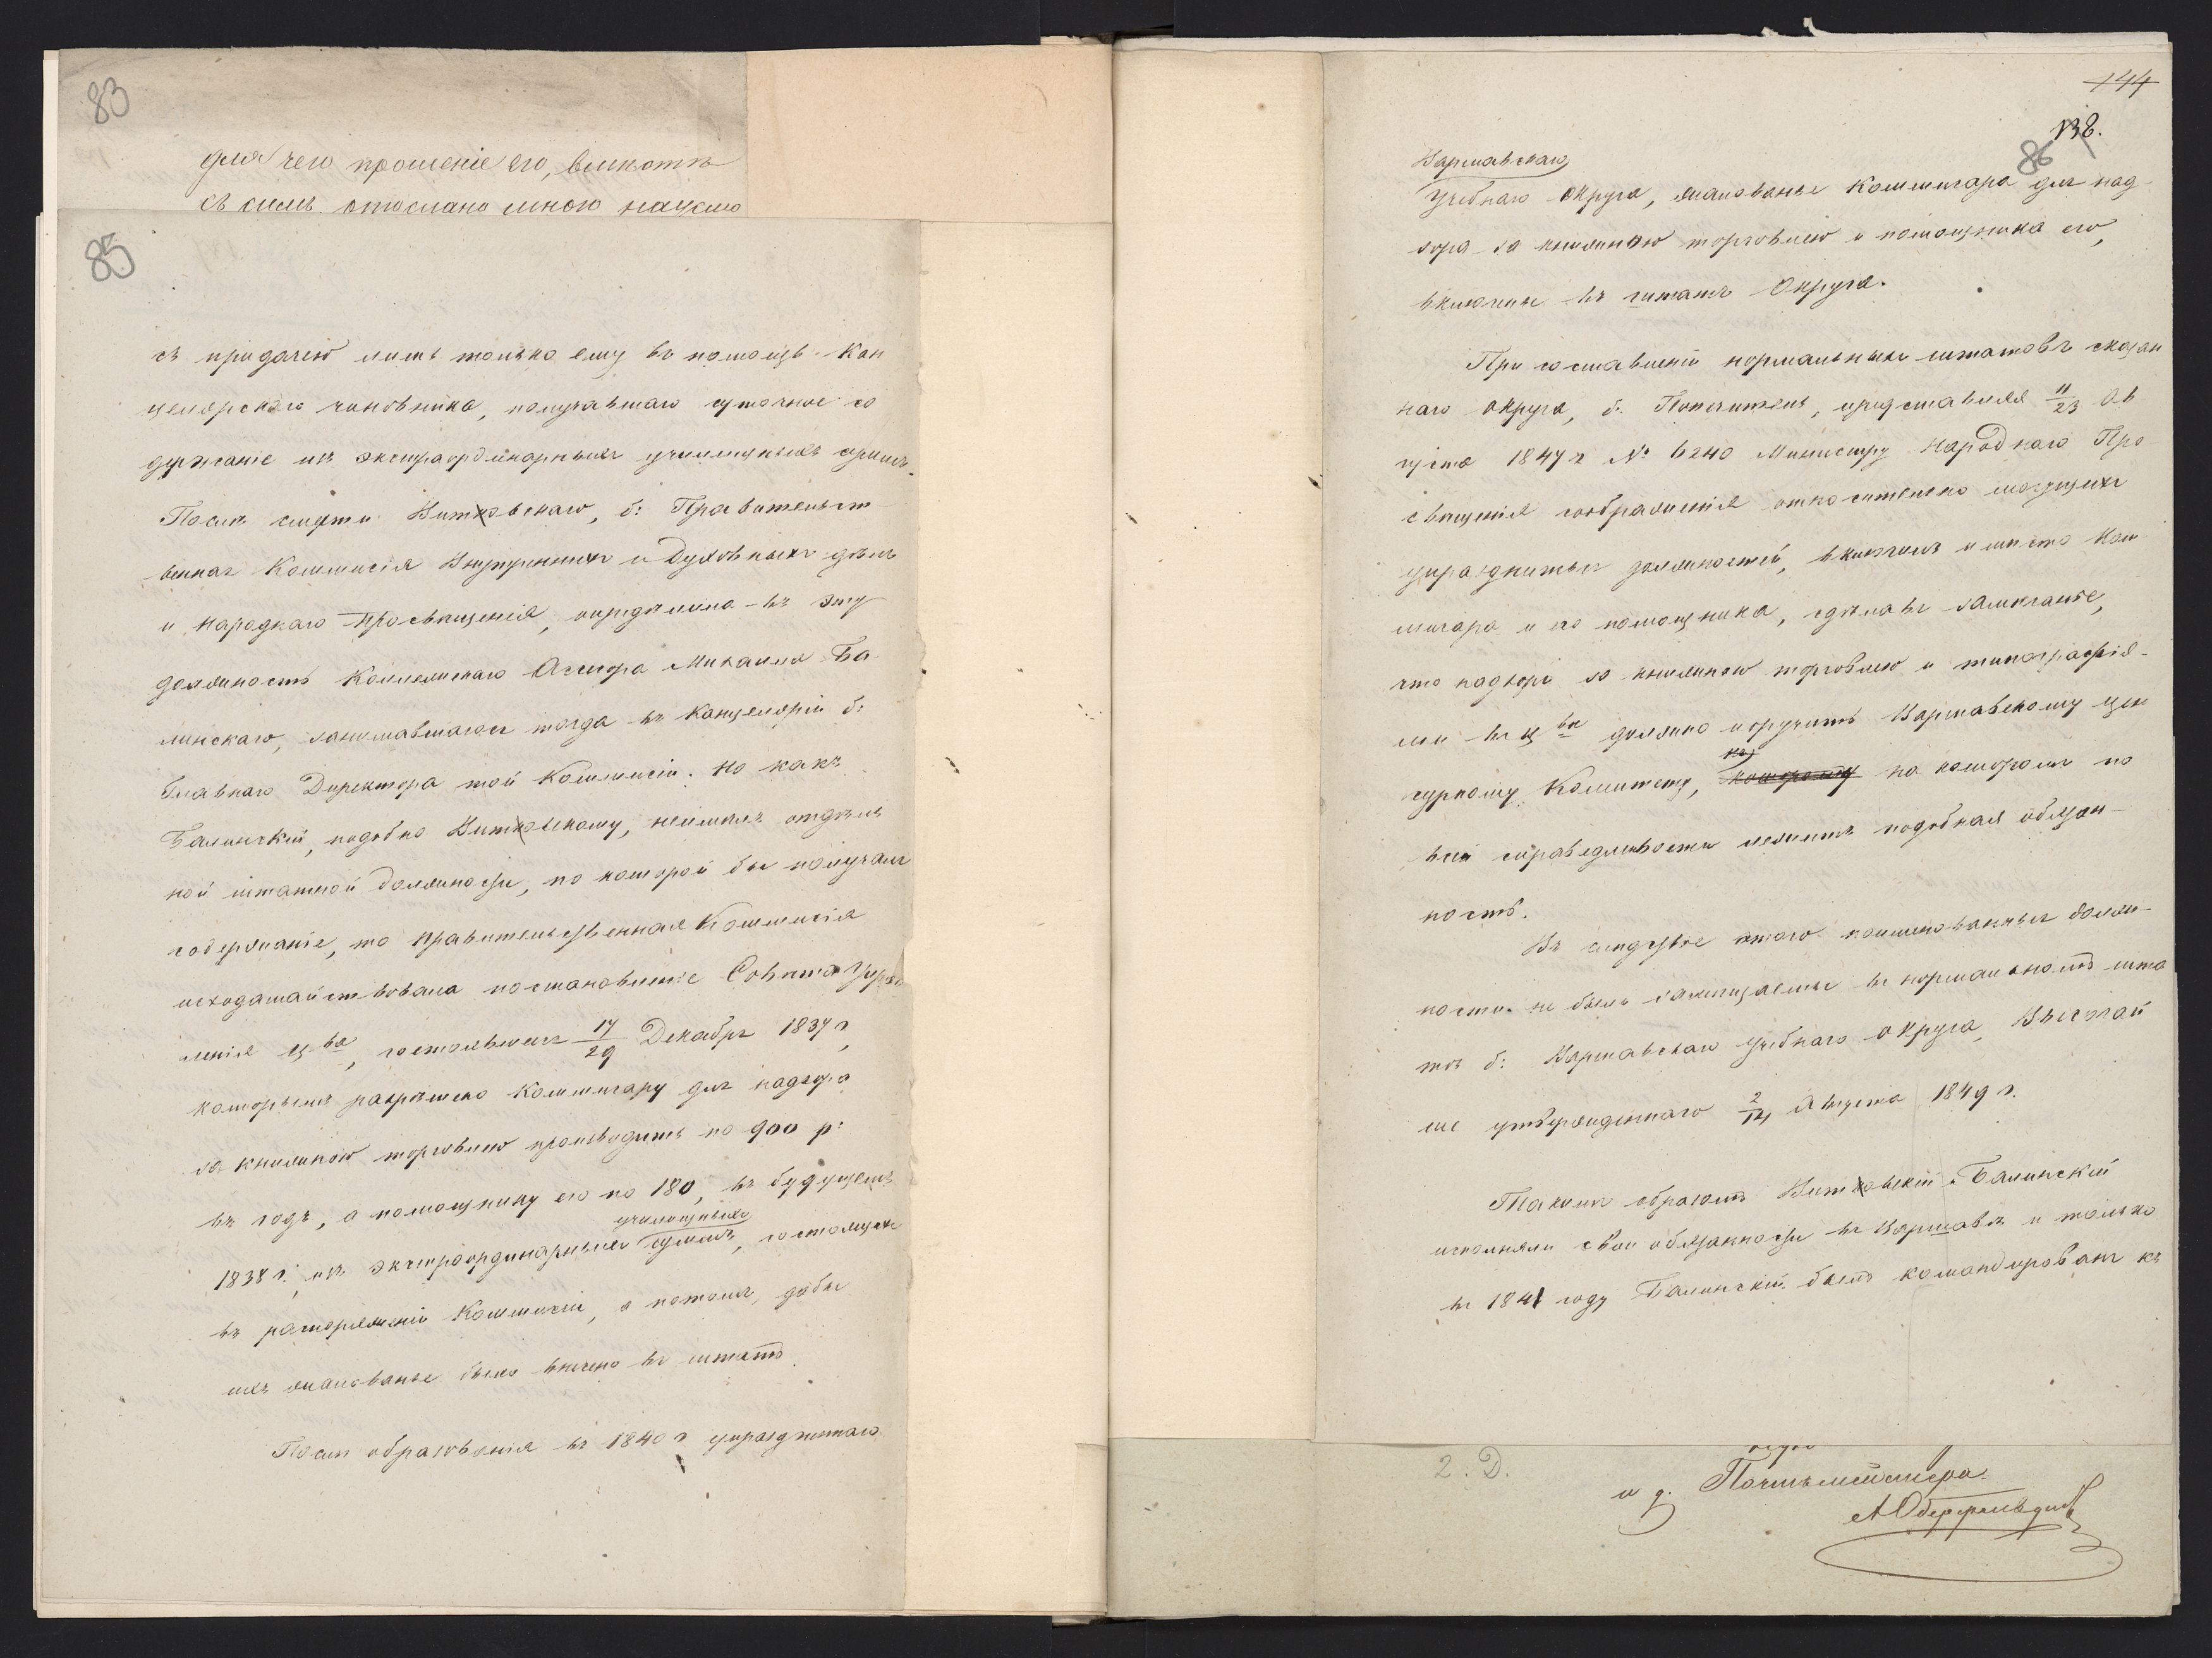 83
для чего прошеніе его, вмѣстѣ
съ симъ отослано мною
85
съ придачею лишь только ему въ помощь Кан
целярскаго чиновника, получавшаго суточное со
держаніе изъ экстраординарныхъ училищныхъ суммъ.
Послѣ смерти Витковскаго, б: Правительст
венная Коммисія Внутреннихъ и Духовныхъ дѣлъ
и Народнаго Просвѣщенія, опредѣлила въ эту
должность Коллежскаго Ассесора Михаила Ба
линскаго, занимавшагося тогда въ Канцеляріи б:
Главнаго Директора той Коммисіи. Но какъ
Балинскій, подобно Витковскому, неимѣлъ отдѣль
ной штатной должности, по которой бы получалъ
содержаніе, то Правительственная Коммисія
исходатайствовала постановленіе Совѣта Управ
ленія Ц<sup>ва</sup>, состоявшееся 17/29 Декабря 1837 г,
которымъ разрѣшено Коммисару для надзора
за книжною торговлею производить по 900 р:
въ годъ, а помощнику его по 180, въ будущемъ
училищныхъ
1838 г. изъ экстраординарныхъ суммъ, состоящихъ
въ распоряженіи Коммисіи, а потомъ, дабы
ихъ жалованье было внесено въ штатъ.
Послѣ образованія въ 1840 г упраздненнаго
144
138.
86
Варшавскаго
Учебнаго Округа, жалованье Коммисара для над
зора за книжною торговлею и помощника его,
включены въ штатъ Округа.
При составленіи нормальныхъ штатовъ сказан
наго Округа, б. Попечитель, представляя 11/23 Ав
густа 1847 г № 6240 Министру Народнаго Про
свѣщенія соображенія относительно могущихъ
упраздниться должностей, включилъ и мѣсто Ком
мисара и его помощника, сдѣлавъ замѣчаніе,
что надзоръ за книжною торговлею и типографія-
ми въ Ц<sup>вѣ</sup> должно поручить Варшавскому Цен
сурному Комитету, которому на которомъ по
всей справедливости лежитъ подобная обязан-
ность.
Въ слѣдствіе этого поименованныя долж-
ности не были замѣщаемы въ нормальномъ шта
тѣ б: Варшавскаго Учебнаго Округа, Высочай
ше утвержденнаго 2/14 Августа 1849 г.
Такимъ образомъ Витковскій и Балинскій
исполняли свои обязанности въ Варшавѣ и только
въ 1841 году Балинскій былъ командированъ къ
2. Д.
и д. Почтмейстера